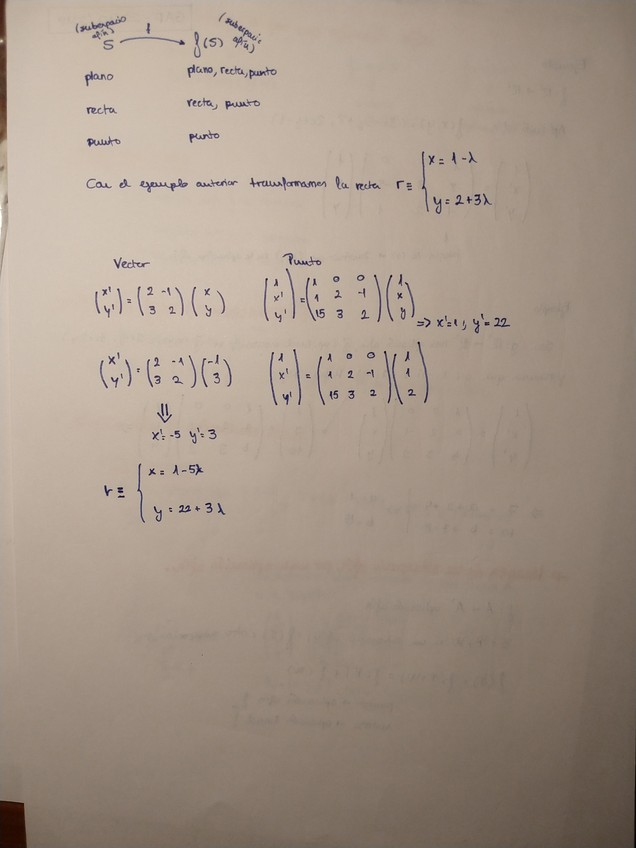 (subespacio afín) f (subespacio afín)
S → f(S)
plano plano, recta, punto
recta recta, punto
punto punto
Con el ejemplo anterior transformamos la recta r ≡ { x = 1-λ
y = 2+3λ
Vector Punto
(x' y') = (2 -1 / 3 2) (x y) (1 x' y') = (1 0 0 / 1 2 -1 / 15 3 2) (1 x y) => x'=1, y'=22
(x' y') = (2 -1 / 3 2) (-1 3) (1 x' y') = (1 0 0 / 1 2 -1 / 15 3 2) (1 1 2)
⇓
x'=-5 y'=3
r ≡ { x = 1-5λ
y = 22+3λ